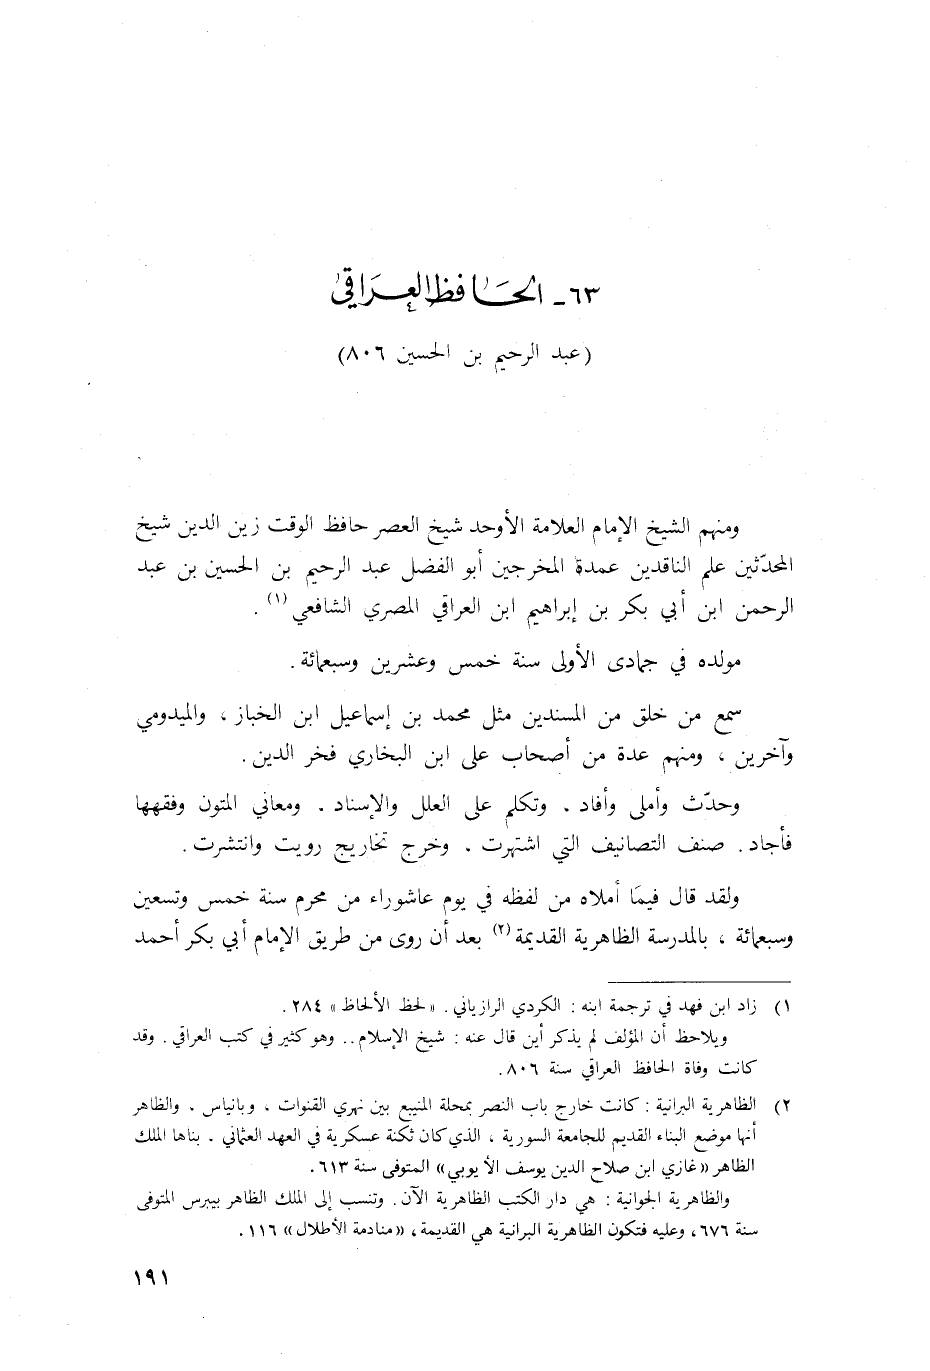 ٦٣ـ الحافظ العراقي
(عبد الرحيم بن الحسين ٨٠٦)
ومنهم الشيخ الإمام العلامة الأوحد شيخ العصر حافظ الوقت زين الدين شيخ
المحدّثين علم الناقدين عمدة المخرجين أبو الفضل عبد الرحيم بن الحسين بن عبد
الرحمن ابن أبي بكر بن إبراهيم ابن العراقي المصري الشافعي (١) .
مولده في جمادى الأولى سنة خمس وعشرين وسبعمائة .
سمع من خلق من المسندين مثل محمد بن إسماعيل ابن الخباز ، والميدومي
وآخرين ، ومنهم عدة من أصحاب على ابن البخاري فخر الدين .
وحدّث وأملى وأفاد . وتكلم على العلل والإسناد . ومعاني المتون وفقهها
فأجاد . صنف التصانيف التي اشتهرت . وخرج تخاريج رويت وانتشرت .
ولقد قال فيمَا أملاه من لفظه في يوم عاشوراء من محرم سنة خمس وتسعين
وسبعمائة ، بالمدرسة الظاهرية القديمة (٢) بعد أن روى من طريق الإمام أبي بكر أحمد
١) زاد ابن فهد في ترجمة ابنه : الكردي الرازياني . « لحظ الألحاظ » ٢٨٤ .
ويلاحظ أن المؤلف لم يذكر أين قال عنه : شيخ الإسلام .. وهو كثير في كتب العراقي . وقد
كانت وفاة الحافظ العراقي سنة ٨٠٦ .
٢) الظاهرية البرانية : كانت خارج باب النصر بمحلة المنيبع بين نهري القنوات ، وبانياس ، والظاهر
أنها موضع البناء القديم للجامعة السورية ، الذي كان ثكنة عسكرية في العهد العثماني . بناها الملك
الظاهر « غازي ابن صلاح الدين يوسف الأيوبي » المتوفى سنة ٦١٣ .
والظاهرية الجوانية : هي دار الكتب الظاهرية الآن . وتنسب إلى الملك الظاهر بيبرس المتوفى
سنة ٦٧٦ ، وعليه فتكون الظاهرية البرانية هي القديمة ، « منادمة الأطلال » ١١٦ .
١٩١